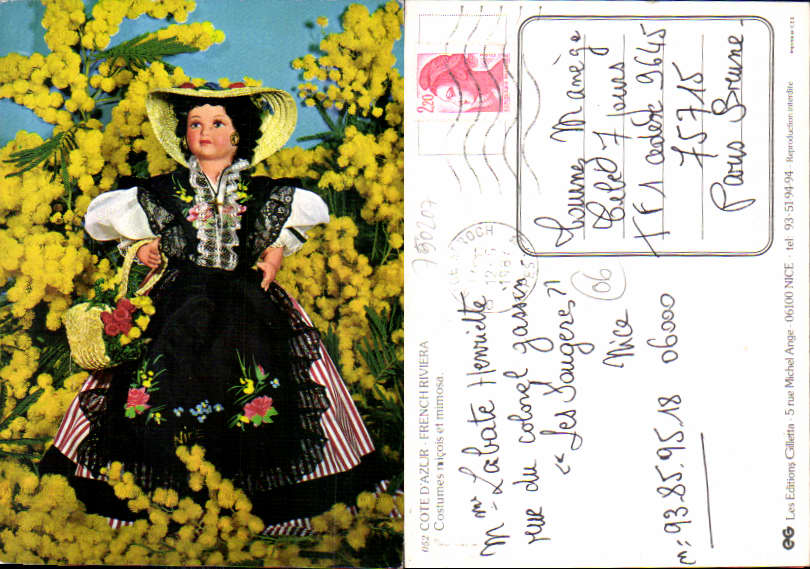 052 COTE D'AZUR - FRENCH RIVIERA
Costumes niçois et mimosa.
Mme Labate Henriette
rue du colonel gassin
"Les Fougeres"
Nice
06000
n°: 93.85.95.18
2,20
1987
06
Manège
Télé 7 jours
TF1 cedex 9645
75715
Paris Brune-
EG Les Editions Gilletta - 5 rue Michel Ange - 06100 NICE - tel 93-51-94-94 - Reproduction interdite